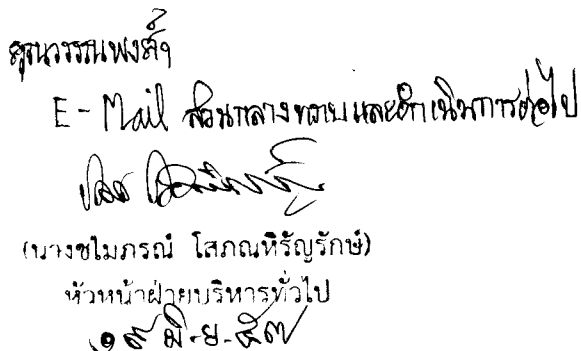 คุณวรรณพงศ์ฯ
E-Mail ส่วนกลางทราบและดำเนินการต่อไป
(นางชไมภรณ์ โสภณหิรัญรักษ์)
หัวหน้าฝ่ายบริหารทั่วไป
๑๙ มิ.ย. ๕๗